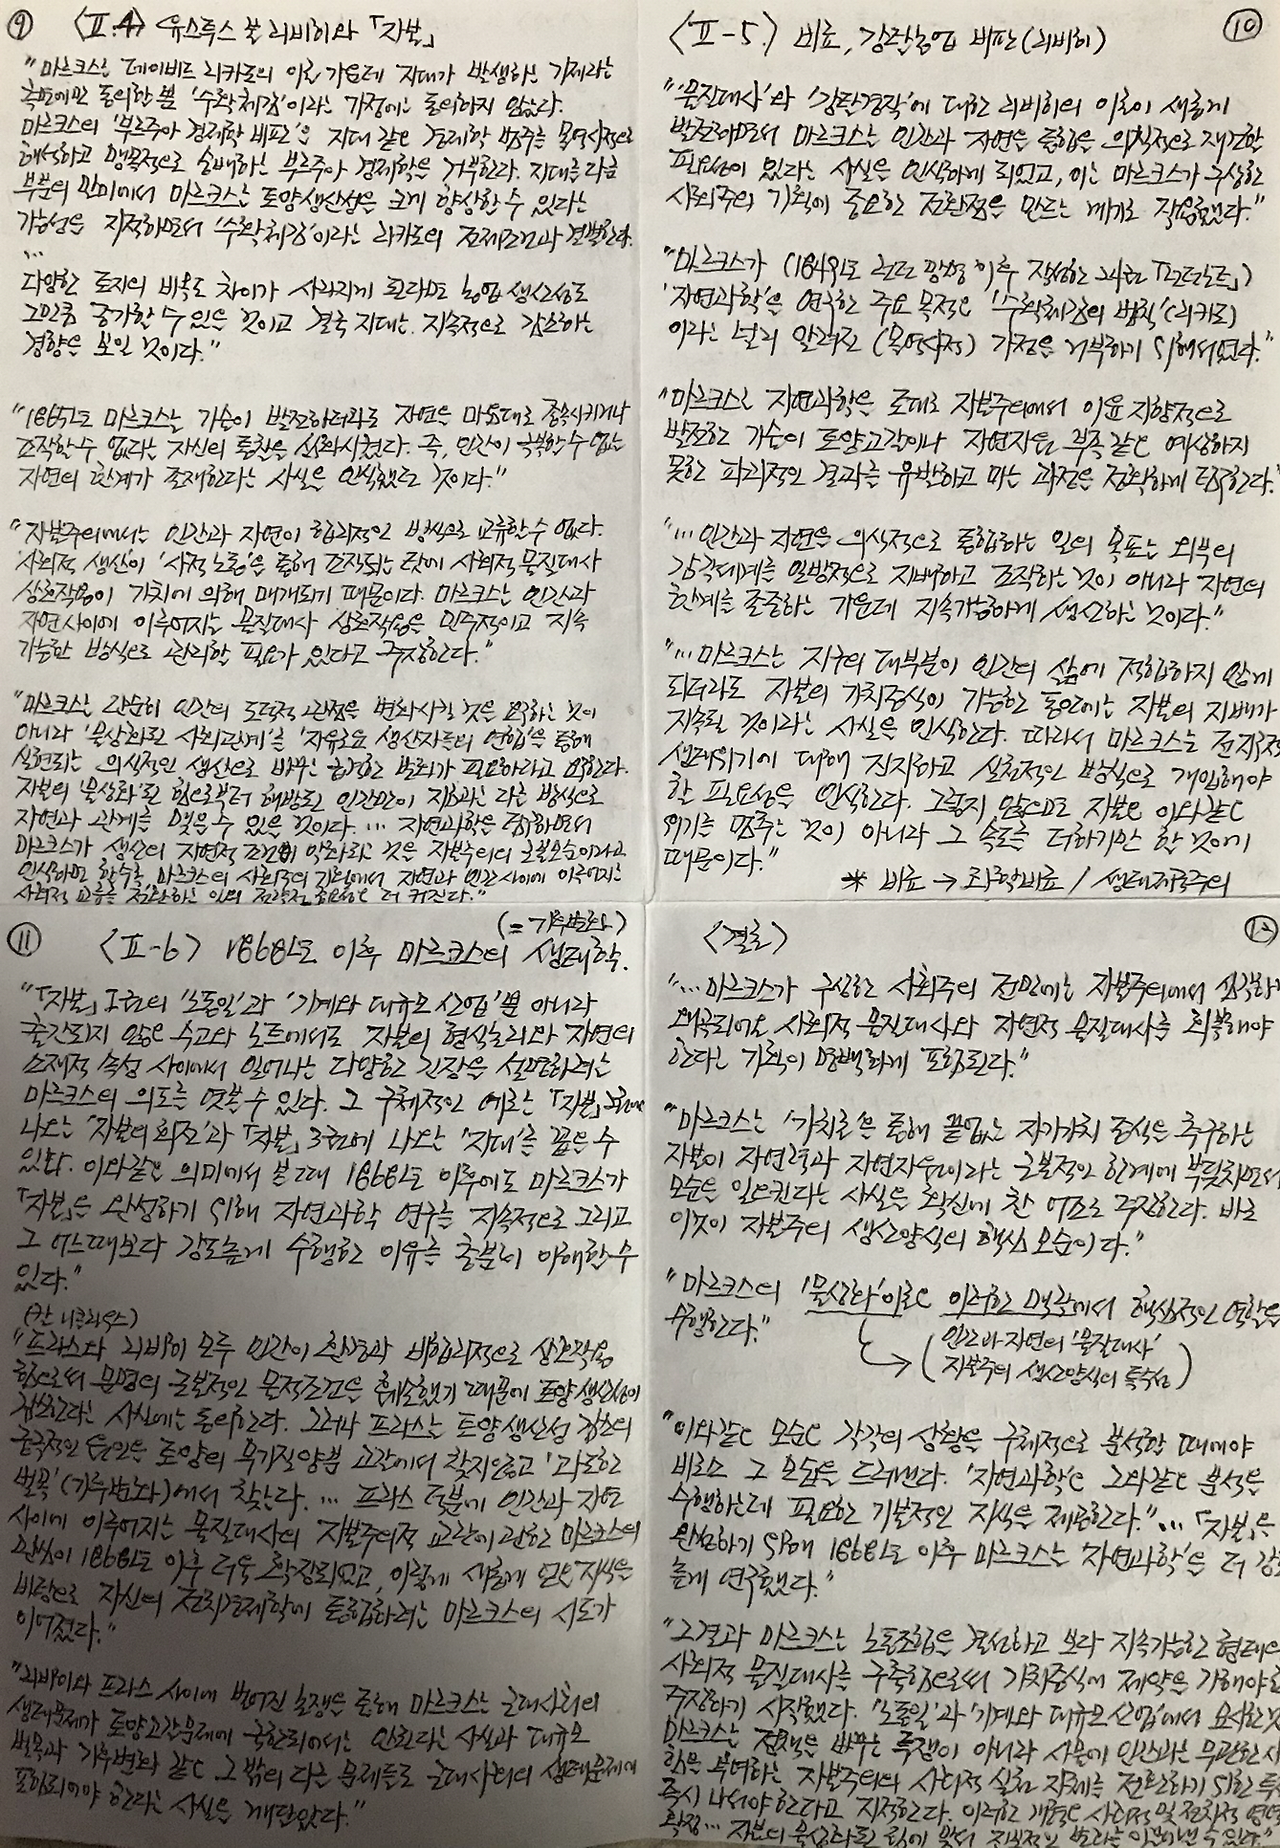 ⑨ <Ⅱ.4> 유스투스 폰 리비히와 「자본」
"마르크스는 데이비드 리카도의 이론 가운데 지대가 발생하는 기제라는
측면에만 동의한 뿐 '수확체감'이라는 가정에는 동의하지 않았다.
마르크스의 '부르주아 경제학 비판'은 지대 같은 경제학 범주를 몰역사적으로
해석하고 맹목적으로 숭배하는 부르주아 경제학을 거부한다. 지대를 다룬
부분의 말미에서 마르크스는 토양생산성을 크게 향상할 수 있다는
가능성을 지적하면서 '수확체감'이라는 리카도의 전제조건과 결별한다.
...
다양한 토지의 비옥도 차이가 사라지게 된다면 농업 생산성도
그만큼 증가할 수 있을 것이고 결국 지대는 지속적으로 감소하는
경향을 보일 것이다."
"1865년도 마르크스는 기술이 발전하더라도 자연을 마음대로 종속시키거나
조작할 수 없다는 자신의 통찰을 심화시켰다. 즉, 인간이 극복할 수 없는
자연의 한계가 존재한다는 사실을 인식했던 것이다."
"자본주의에서는 인간과 자연이 합리적인 방식으로 교류할 수 없다.
'사회적 생산'이 '사적 노동'을 통해 조직되는 탓에 사회적 물질대사
상호작용이 가치에 의해 매개되기 때문이다. 마르크스는 인간과
자연 사이에 이루어지는 물질대사 상호작용을 민주적이고 지속
가능한 방식으로 관리할 필요가 있다고 주장한다."
"마르크스는 단순히 인간의 도덕적 관점을 변화시킬 것을 요구하는 것이
아니라 '물상화된 사회관계'를 '자유로운 생산자들의 연합'을 통해
실현되는 의식적인 생산으로 바꾸는 급진적 변화가 필요하라고 요구한다.
자본의 '물상화'된 힘으로부터 해방된 인간만이 지금과는 다른 방식으로
자연과 관계를 맺을 수 있을 것이다. ... 자연과학을 탐구하면서
마르크스가 생산의 자연적 조건이 악화되는 것을 자본주의의 근본모순이라고
인식하면 할수록 마르크스의 사회주의 기획에서 자연과 인간 사이에 이루어지는
사회적 교류를 전환하는 일의 전략적 중요성은 더 커진다."
<Ⅱ-5.> 비료, 강탈농업 비판(리비히) ⑩
"'물질대사'와 '강탈경작'에 대한 리비히의 이론이 새롭게
발전하면서 마르크스는 인간과 자연의 통합을 의식적으로 재건할
필요성이 있다는 사실을 인식하게 되었고, 이는 마르크스가 구상한
사회주의 기획에 중요한 전환점을 만드는 계기로 작용했다."
"마르크스가 (1849년도 런던 망명 이후 작성한 그의 「런던노트」)
'자연과학'을 연구한 주요 목적은 '수확체감의 법칙'(리카도)
이라는 널리 알려진 (몰역사적) 가정을 거부하기 위해서였다."
"마르크스는 자연과학을 토대로 자본주의에서 이윤 지향적으로
발전한 기술이 토양고갈이나 자연자원 부족 같은 예상하지
못한 파괴적인 결과를 유발하고 마는 과정을 정확하게 탐구한다."
"...인간과 자연을 의식적으로 통합하는 일의 목표는 외부의
감각세계를 일방적으로 지배하고 조작하는 것이 아니라 자연의
한계를 존중하는 가운데 지속가능하게 생산하는 것이다."
"...마르크스는 지구의 대부분이 인간의 삶에 적합하지 않게
되더라도 자본의 가치증식이 가능한 동안에는 자본의 지배가
지속될 것이라는 사실을 인식한다. 따라서 마르크스는 전지구적
생태위기에 대해 진지하고 실천적인 방식으로 개입해야
할 필요성을 인식한다. 그렇지 않으면 자본은 이와같은
위기를 멈추는 것이 아니라 그 속도를 더하기만 할 것이기
때문이다."
* 비료 → 화학비료 / 생태제국주의
(=기후변화)
⑪ <Ⅱ-6> 1868년도 이후 마르크스의 생태학.
"「자본」 1권의 '노동일'과 '기계와 대규모 산업'뿐 아니라
출간되지 않은 수고와 노트에서도 자본의 형식논리와 자연의
소재적 속성 사이에서 일어나는 다양한 긴장을 설명하려는
마르크스의 의도를 엿볼 수 있다. 그 구체적인 예로는 「자본」 2권에
나오는 '자본의 회전'과 「자본」 3권에 나오는 '지대'를 꼽을 수
있다. 이와같은 의미에서 볼 때 1868년도 이후에도 마르크스가
「자본」을 완성하기 위해 자연과학 연구를 지속적으로 그리고
그 어느때보다 강도높게 수행한 이유를 충분히 이해할 수
있다."
(칼 니콜라우스)
"프라스와 리비히 모두 인간이 환경과 비합리적으로 상호작용
함으로써 문명의 근본적인 물적조건을 훼손했기 때문에 토양생산성이
감소한다는 사실에는 동의한다. 그러나 프라스는 토양생산성 감소의
궁극적인 원인을 토양의 무기질양분 고갈에서 찾지않고 '과도한
벌목(기후변화)에서 찾는다. ... 프라스 덕분에 인간과 자연
사이에 이루어지는 물질대사의 자본주의적 교란에 관한 마르크스의
관심이 1868년도 이후 더욱 확장되었고, 이렇게 새롭게 얻은 지식을
바탕으로 자신의 정치경제학에 통합하려는 마르크스의 시도가
이어졌다."
"리비히와 프라스 사이에 벌어진 논쟁을 통해 마르크스는 근대사회의
생태문제가 토양고갈문제에 국한되어서는 안된다는 사실과 대규모
벌목과 기후변화 같은 그 밖의 다른 문제들도 근대사회의 생태문제에
포함되어야 한다는 사실을 깨달았다."
<결론> ⑫
"...마르크스가 구상한 사회주의 전망에는 자본주의에서 심각하게
왜곡되어온 사회적 물질대사와 자연적 물질대사를 회복해야
한다는 기획이 명백하게 포함된다."
"마르크스는 '가치론'을 통해 끝없는 자기가치 증식을 추구하는
자본이 자연력과 자연자원이라는 근본적인 한계에 부딪치면서
모순을 일으킨다는 사실을 확신에 찬 어조로 주장한다. 바로
이것이 자본주의 생산양식의 핵심모순이다."
"마르크스의 '물상화'이론은 이러한 맥락에서 핵심적인 역할을
수행한다."
→ (인간과 자연의 '물질대사'
자본주의 생산양식의 특수성)
"이와같은 모순은 각각의 상황을 구체적으로 분석할 때에야
비로소 그 모습을 드러낸다. '자연과학'은 그와같은 분석을
수행하는데 필요한 기본적인 지식을 제공한다." ... 「자본」을
완성하기 위해 1868년도 이후 마르크스는 '자연과학'을 더 강도
높게 연구했다."
"그결과 마르크스는 노동조합을 결성하고 보다 지속가능한 형태의
사회적 물질대사를 구축함으로써 가치증식에 제약을 가해야 한다고
주장하기 시작했다. '노동일'과 '기계와 대규모 산업'에서
마르크스는 정책을 바꾸는 투쟁이 아니라 사물에 인간과는 무관한 사회적
힘을 부여하는 자본주의의 사회적 실천 자체를 전환하기 위한 투쟁
즉시 나서야 한다고 지적한다. 이러한 개혁은 사회적 및 정치적 영역
확장... 자본의 물상화된 힘에 맞서